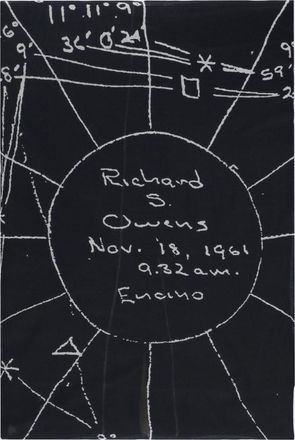 11° 11' 9°
6°
9'
36' 0' 2
59'
8'
2
Richard
S.
Owens
Nov. 18, 1961
9.32 a.m.
Encino